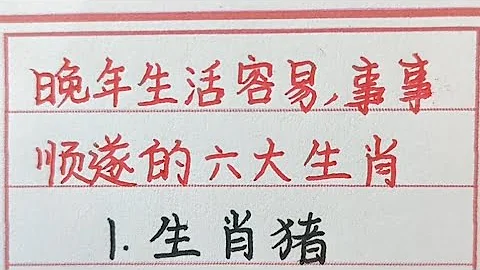 晚年生活容易,事事
顺遂的六大生肖
1.生肖猪